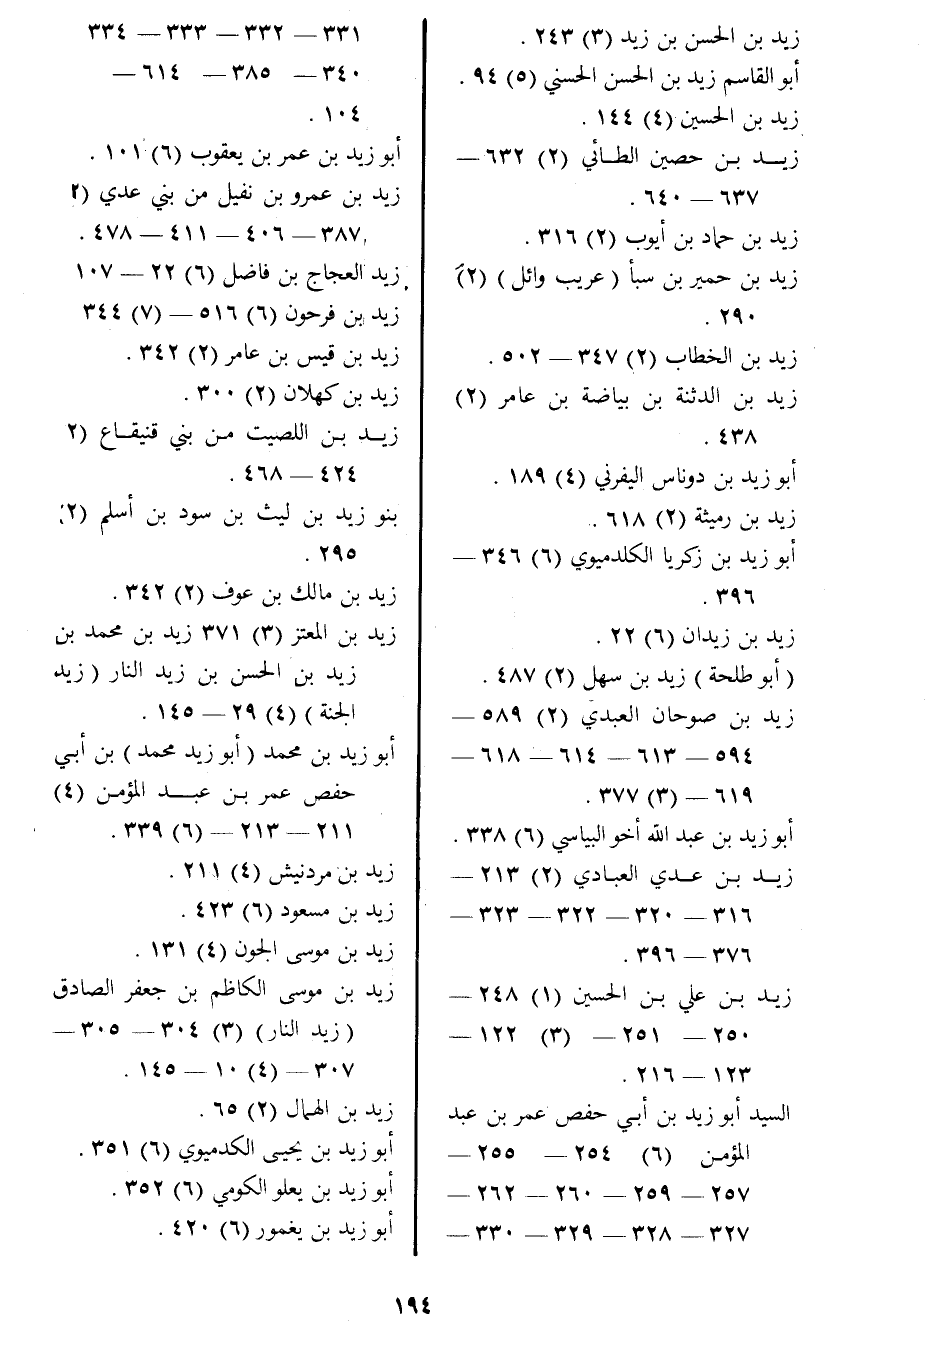 زيد بن الحسن بن زيد (٣) ٢٤٣ .
أبو القاسم زيد بن الحسن الحسني (٥) ٩٤ .
زيد بن الحسين (٤) ١٤٤ .
زيد بن حصين الطائي (٢) ٦٣٢ —
٦٣٧ — ٦٤٠ .
زيد بن حماد بن أيوب (٢) ٣١٦ .
زيد بن حمير بن سبأ ( عريب وائل ) (٢)
٢٩٠ .
زيد بن الخطاب (٢) ٣٤٧ — ٥٠٢ .
زيد بن الدثنة بن بياضة بن عامر (٢)
٤٣٨ .
أبو زيد بن دوناس اليفرني (٤) ١٨٩ .
زيد بن رميثة (٢) ٦١٨ .
أبو زيد بن زكريا الكلدميوي (٦) ٣٤٦ —
٣٩٦ .
زيد بن زيدان (٦) ٢٢ .
( أبو طلحة ) زيد بن سهل (٢) ٤٨٧ .
زيد بن صوحان العبدي (٢) ٥٨٩ —
٥٩٤ — ٦١٣ — ٦١٤ — ٦١٨ —
٦١٩ — (٣) ٣٧٧ .
أبو زيد بن عبد الله أخو البياسي (٦) ٣٣٨ .
زيد بن عدي العبادي (٢) ٢١٣ —
٣١٦ — ٣٢٠ — ٣٢٢ — ٣٢٣ —
٣٧٦ — ٣٩٦ .
زيد بن علي بن الحسين (١) ٢٤٨ —
٢٥٠ — ٢٥١ — (٣) ١٢٢ —
١٢٣ — ٢١٦ .
السيد أبو زيد بن أبي حفص عمر بن عبد
المؤمن (٦) ٢٥٤ — ٢٥٥ —
٢٥٧ — ٢٥٩ — ٢٦٠ — ٢٦٢ —
٣٢٧ — ٣٢٨ — ٣٢٩ — ٣٣٠ —
٣٣١ — ٣٣٢ — ٣٣٣ — ٣٣٤
٣٤٠ — ٣٨٥ — ٦١٤ —
١٠٤ .
أبو زيد بن عمر بن يعقوب (٦) ١٠١ .
زيد بن عمرو بن نفيل من بني عدي (٢
٣٨٧ — ٤٠٦ — ٤١١ — ٤٧٨ .
زيد العجاج بن فاضل (٦) ٢٢ — ١٠٧
زيد بن فرحون (٦) ٥١٦ — (٧) ٣٤٤
زيد بن قيس بن عامر (٢) ٣٤٢ .
زيد بن كهلان (٢) ٣٠٠ .
زيد بن اللصيت من بني قنيقاع (٢
٤٢٤ — ٤٦٨ .
بنو زيد بن ليث بن سود بن أسلم (٢)
٢٩٥ .
زيد بن مالك بن عوف (٢) ٣٤٢ .
زيد بن المعتز (٣) ٣٧١ زيد بن محمد بن
زيد بن الحسن بن زيد النار ( زيد
الجنة ) (٤) ٢٩ — ١٤٥ .
أبو زيد بن محمد ( أبو زيد محمد ) بن أبي
حفص عمر بن عبد المؤمن (٤)
٢١١ — ٢١٣ — (٦) ٣٣٩ .
زيد بن مردنيش (٤) ٢١١ .
زيد بن مسعود (٦) ٤٢٣ .
زيد بن موسى الجون (٤) ١٣١ .
زيد بن موسى الكاظم بن جعفر الصادق
( زيد النار ) (٣) ٣٠٤ — ٣٠٥ —
٣٠٧ — (٤) ١٠ — ١٤٥ .
زيد بن الهمال (٢) ٦٥ .
أبو زيد بن يحيى الكدميوي (٦) ٣٥١ .
أبو زيد بن يعلو الكومي (٦) ٣٥٢ .
أبو زيد بن يغمور (٦) ٤٢٠ .
١٩٤